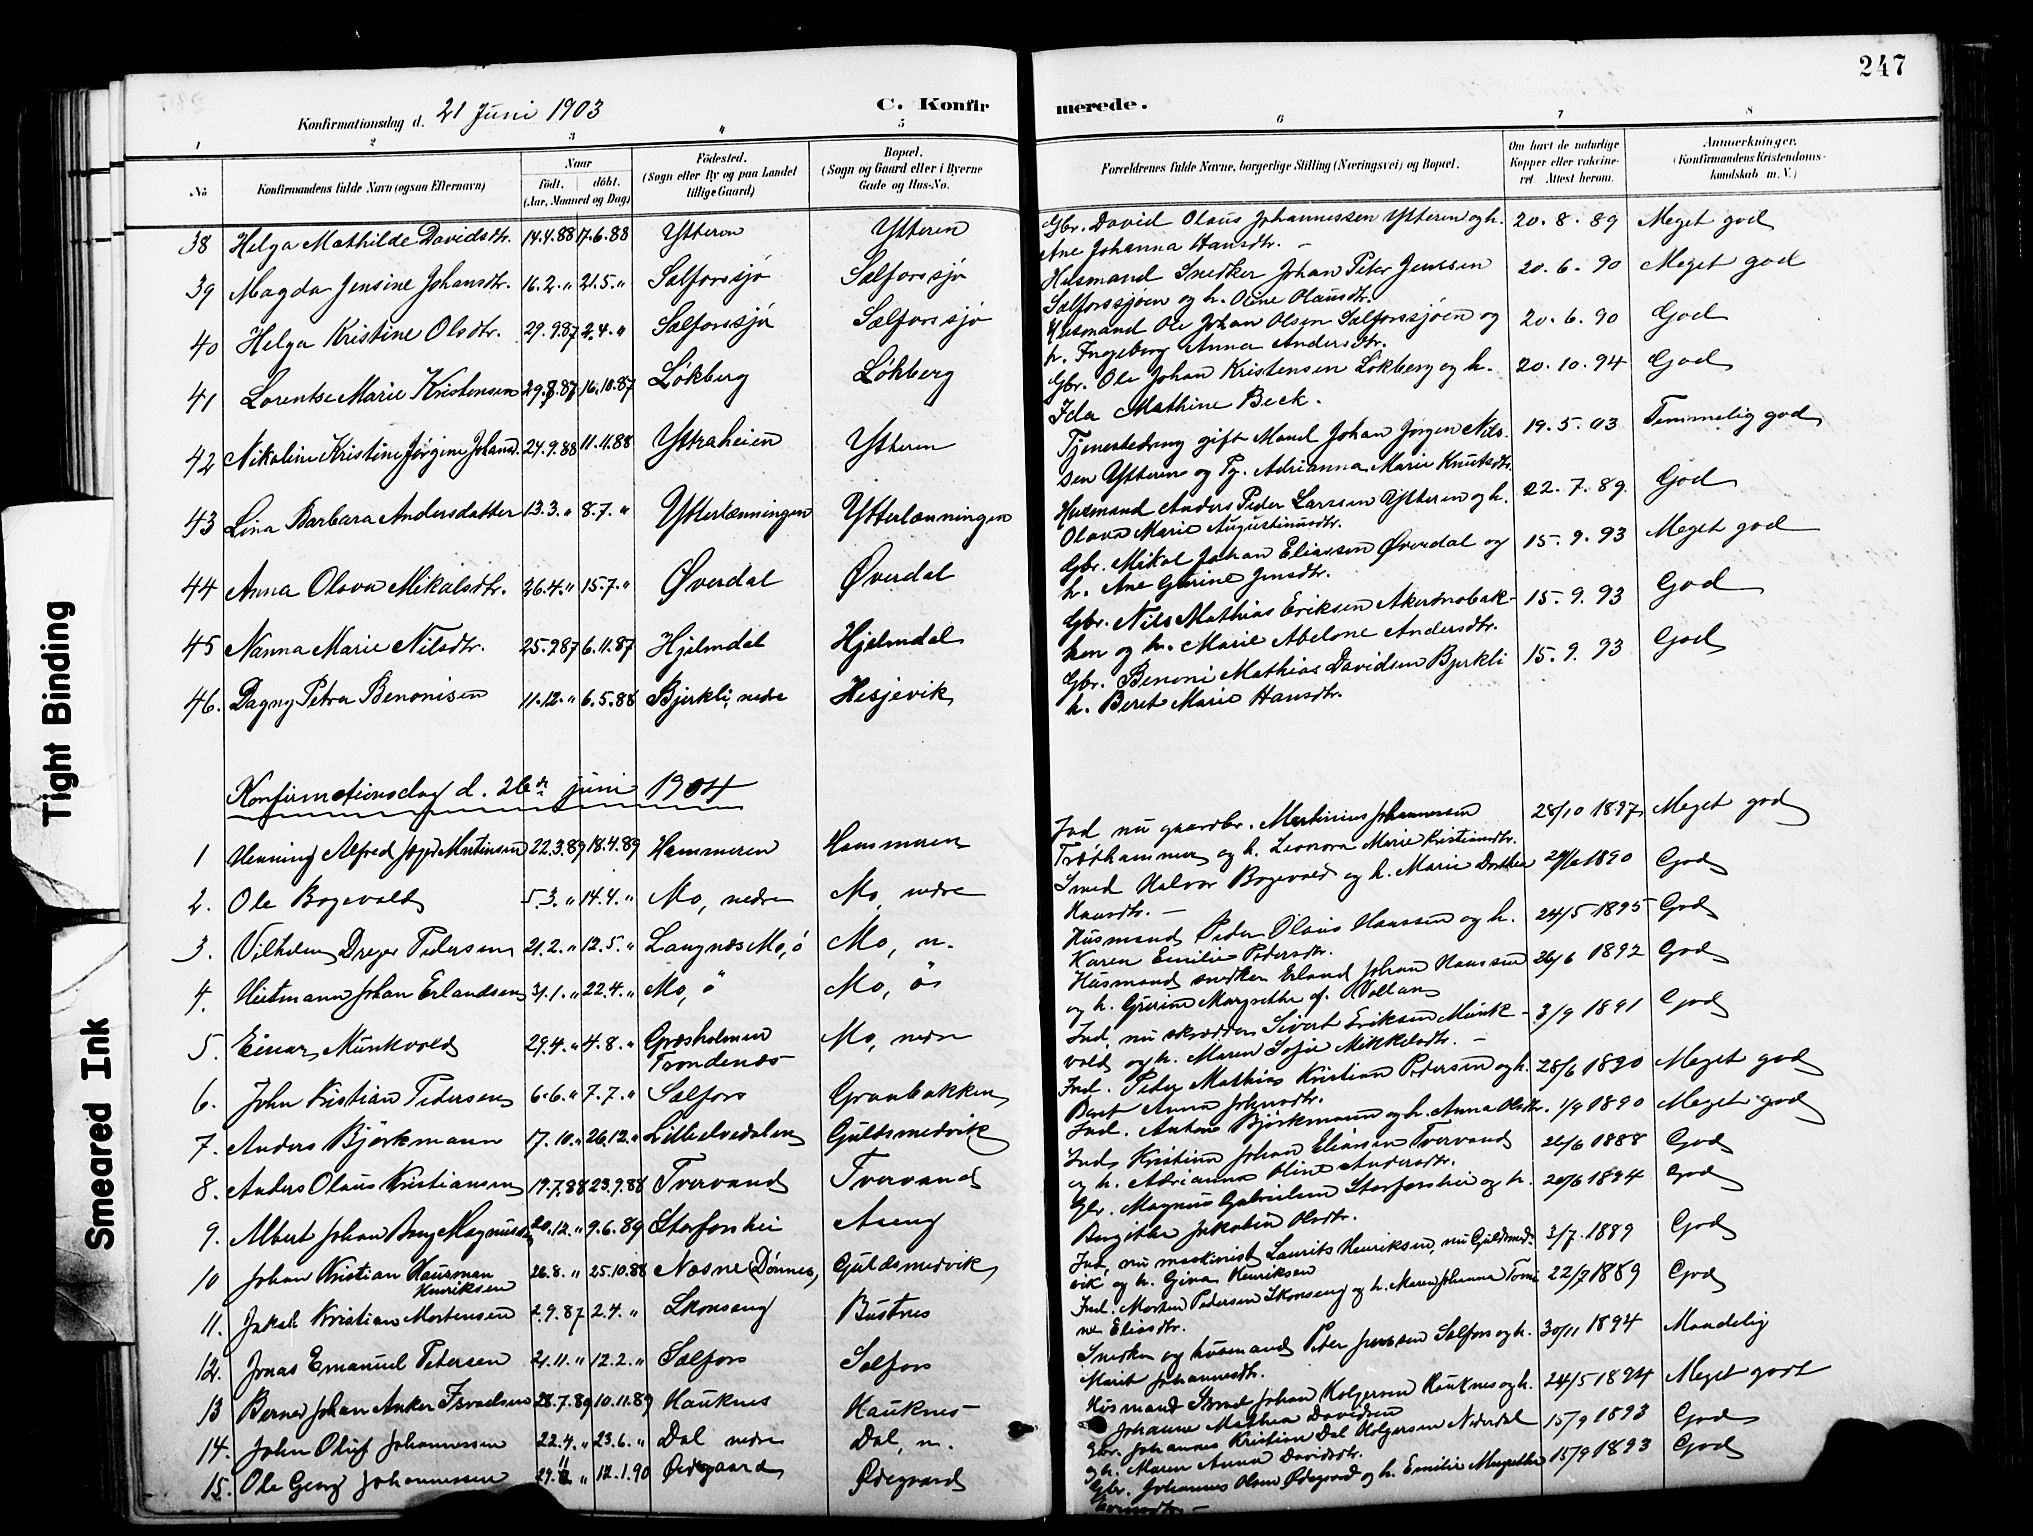 247
Konfirmationsdag d. 21 Juni 1903
C. Konfirmerede.
1 2 3 4 5 6 7 8
No
Konfirmandens fulde Navn (ogsaa Efternavn)
Naar
født. døbt.
(Aar, Maaned og Dag)
Fødested.
(Sogn eller By og paa Landet
tillige Gaard)
Bopæl.
(Sogn og Gaard eller i Byerne
Gade og Hus-No.
Forældrenes fulde Navne, borgerlige Stilling (Næringsvei) og Bopæl.
Om havt de naturlige
Kopper eller vaccine-
ret Attest herom.
Anmerkninger.
(Konfirmandens Kristendoms-
kundskab m. V.)
38 Helga Mathilde Davidsdtr. 14.4.88 17.6.88 Ytteren Ytteren Gbr. David Olaus Johannessen Ytteren og h. 20.8.89 Meget god
Ane Johanna Hansdtr. -
39 Magda Jensine Johansdtr. 16.2. " 21.5. " Selforssjø Selforssjø Husmand Snedker Johan Peter Jenssen 20.6.90 Meget god
Selforssjøen og h. Oline Olausdtr.
40 Helga Kristine Olsdtr. 29.9.87 2.4. " Selforssjø Selforssjø Husmand Ole Johan Olsen Selforssjøen og 20.6.90 God
h. Ingeborg Anna Andersdtr.
41 Lorentse Marie Kristensen 29.8.87 16.10.87 Lökberg Lökberg Gbr. Ole Johan Kristensen Lökberg og h. 20.10.94 God
Ida Mathine Beck.
42 Nikoline Kristine Jørgine Johansd. 24.9.88 11.11.88 Yttraheien Ytteren Tjenestedreng gift Mand Johan Jørgen Nils- 19.5.03 Temmelig god
sen Ytteren og Pg. Adrianna Marie Knutsdtr.
43 Lina Barbara Andersdatter 13.3. " 8.7. " Ytterlænningen Ytterlænningen Husmand Anders Peder Larssen Ytteren og h. 22.7.89. God
Olava Marie Augustinusdtr.
44 Anna Olava Mikalsdtr. 26.4. " 15.7. " Øverdal Øverdal Gbr. Mikal Johan Eliassen Øverdal og 15.9.93 Meget god
h. Ane Gurine Jensdtr.
45 Nanna Marie Nilsdtr. 25.9.87 6.11.87 Hjelmdal Hjelmdal Gbr. Nils Mathias Eriksen Akersnobak- 15.9.93 God
ken og h. Marie Abelone Andersdtr.
46. Dagny Petra Benonisen 11.12. " 6.5.88 Bjerkli, nedre Hesjevik Gbr. Benoni Mathias Davidsen Bjerkli 15.9.93 God
h. Beret Marie Hansdtr.
Konfirmationsdag d. 26de juni 1904
1 Henning Alfred Jepp Martinsen 22.3.89 18.4.89 Hammeren Hammeren Ind. nu gaardbr. Martinius Johannessen 28/10 1897 Meget god
Træthammeren og h. Leonora Marie Kristiansdtr.
2. Ole Bogevold 5.3. " 14.4. " Mo, nedre Mo, nedre Smed Halvor Bogevold og h. Marie Dorthea 24/6 1890 God
Hansdtr. -
3. Vilhelm Dreyer Pedersen 21.2. " 12.5. " Langnæs Mo, ö Mo, n. Husmand Peder Olaus Hanssen og h. 24/5 1895 God
Karen Emilie Pedersdtr.
4. Heitmann Johan Erlandsen 3/.1. " 22.4. " Mo, ö Mo, ö Husmand snedker Erland Johan Hanssen 26/6 1892 God
og h. Gurine Margrethe af. Vollan
5. Einar Munkvold 29.4. " 4.8. " Græsholmen Mo, nedre Ind. nu skrædder Sivert Eriksen Munk- 3/9 1891 God
Trondenæs vold og h. Maren Sofie Mikkelsdtr. -
6. John Kristian Pedersen 6.6. " 7.7. " Selfors Granbakken Ind. Peder Mathias Kristian Pedersen og h. 28/6 1890 Meget god
Beret Anna Johnsdtr.
7. Anders Björkmann 17.10. " 26.12. " Lilleelvedalen Guldsmedvik Ind. Anton Björkmann og h. Anna Olsdtr. 1/9 1890 Meget god
8. Anders Olaus Kristiansen 19.7.88 23.9.88 Tvervand Tvervand Ind. Kristian Johan Eliassen Tvervand 26/6 1888 God
og h. Adrianna Oline Andersdtr.
9. Albert Johan Berg Magnussen 20.12. " 9.6.89 Storforshei Aseng Gbr. Magnus Gabrielsen Storforshei og h. 26/6 1894 God
Bergitte Jakobine Olsdtr.
10 Johan Kristian Hausman 26.8. " 25.10.88 Næsne (Dønnes) Guldsmedvik Ind. nu maskinist Laurits Henriksen, nu Guldsmed- 3/7. 1889 God
Henriksen vik og h. Gina Henriksen
11. Jakob Kristian Mortensen 2.9.87 2.4. " Skonseng Bustnes Ind. Morten Pedersen Skonseng og h. Maren Johanna Tomi- 22/7 1889 God
ne Eliasdtr.
12. Jonas Emanuel Petersen 21.11. " 12.2. " Selfors Selfors Snedker og husmand Peter Jenssen Selfors og h. 30/11 1894 Maadelig
Marit Johannesdtr.
13 Berner Johan Anker Israelsen 28.7.89 10.11.89 Hauknes Hauknes Husmand Israel Johan Holgersen Hauknes og h. 24/5 1894 Meget godt
Johanne Mathea Davidsen
14. John Oluf Johannessen 22.4. " 23.6. " Dal nedre Dal, n. Gbr. Johannes Kristian Dal Holgersen Nederdal 15/9 1893 God
og h. Maren Anna Davidsdtr.
15. Ole Georg Johannessen 29.11 " 12.1.90 Ødegaard Ødegaard Gbr. Johannes Olsen Ødegaard og h. Emilie Margrethe 15/9 1893 God
Tight Binding
Smeared Ink